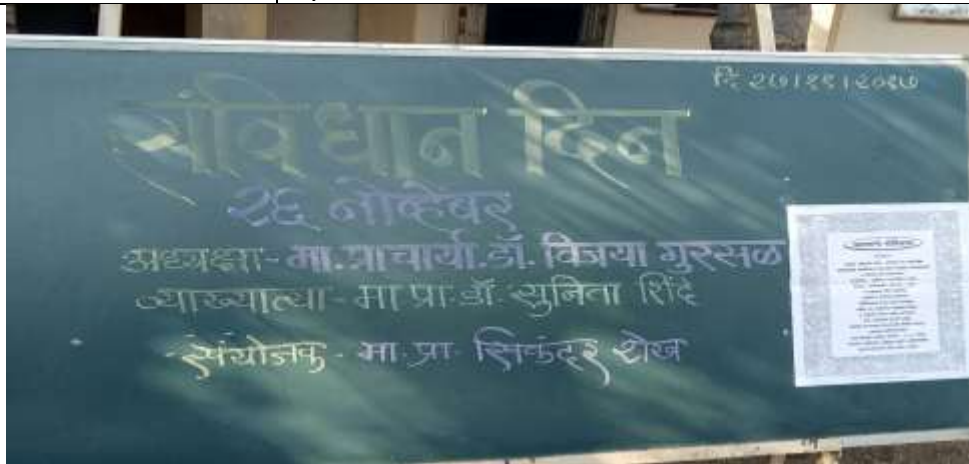 दि २७।११।२०१७
संविधान दिन
२६ नोव्हेंबर
अध्यक्षा - मा. प्राचार्या. डॉ. विजया गुरसळ
व्याख्यात्या - मा प्रा. डॉ. सुनिता शिंदे
संयोजक - मा. प्रा. सिकंदर शेख